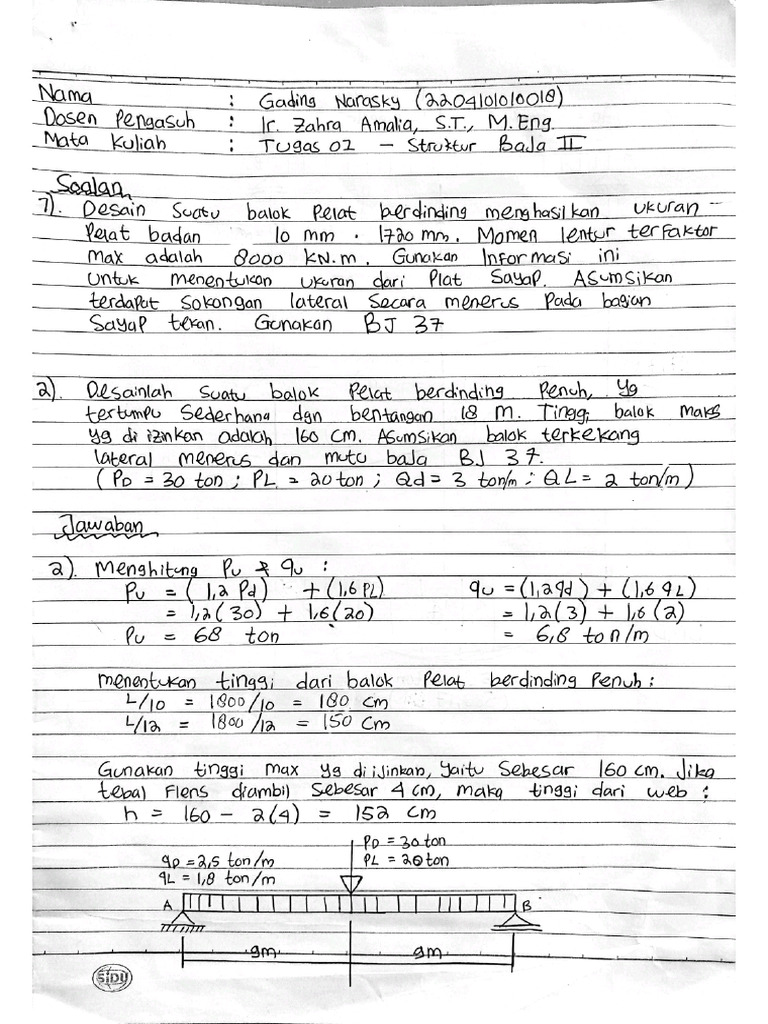 Nama : Gading Narasky (2204101010018)
Dosen Pengasuh : Ir. Zahra Amalia, S.T., M.Eng.
Mata Kuliah : Tugas 02 - Struktur Baja II
Soalan
1). Desain suatu balok pelat berdinding menghasilkan ukuran
pelat badan 10 mm . 1720 mm. Momen lentur terfaktor
max adalah 8000 kN.m. Gunakan Informasi ini
untuk menentukan ukuran dari Plat Sayap. Asumsikan
terdapat sokongan lateral secara menerus pada bagian
sayap tekan. Gunakan BJ 37
2). Desainlah suatu balok pelat berdinding penuh, yg
tertumpu sederhana dgn bentangan 18 m. Tinggi balok maks
yg di izinkan adalah 160 cm. Asumsikan balok terkekang
lateral menerus dan mutu baja BJ 37.
(PD = 30 ton ; PL = 20 ton ; Qd = 3 ton/m ; QL = 2 ton/m)
Jawaban
2). Menghitung Pu & qu :
Pu = (1,2 Pd) + (1,6 PL) qu = (1,2 qd) + (1,6 qL)
= 1,2(30) + 1,6(20) = 1,2(3) + 1,6(2)
Pu = 68 ton = 6,8 ton/m
menentukan tinggi dari balok pelat berdinding penuh :
L/10 = 1800/10 = 180 cm
L/12 = 1800/12 = 150 cm
Gunakan tinggi max yg di ijinkan, yaitu sebesar 160 cm. Jika
tebal Flens diambil sebesar 4 cm, maka tinggi dari web :
h = 160 - 2(4) = 152 cm
PD = 30 ton
qD = 2,5 ton/m PL = 20 ton
qL = 1,8 ton/m
A B
9m 9m
SiDU